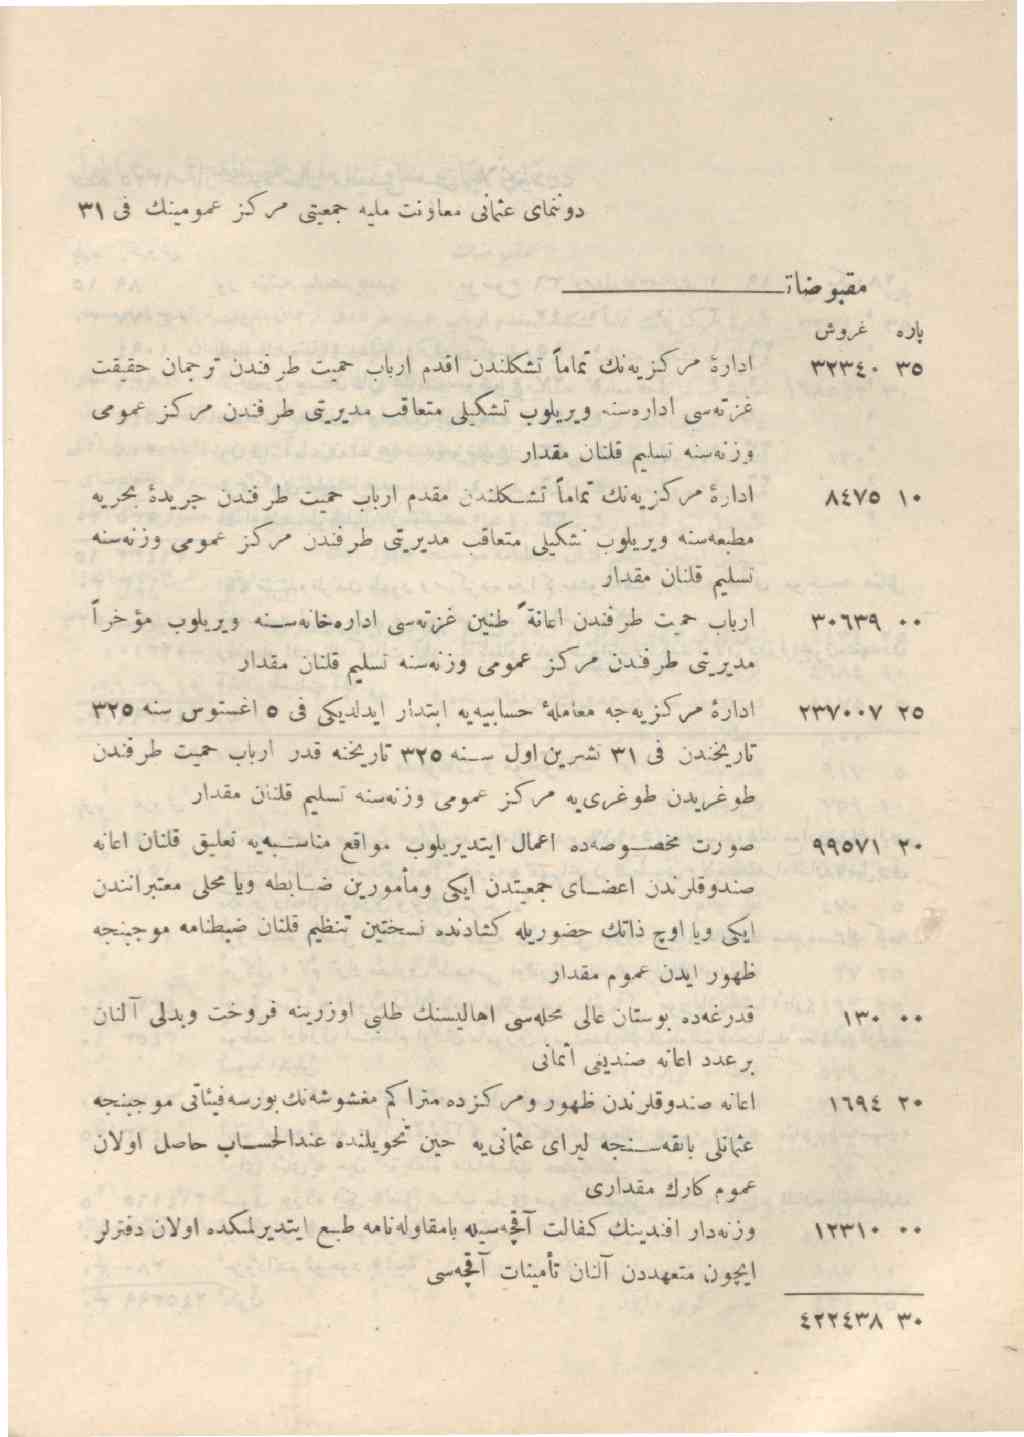 دوننمای عثمانی معاونت ملیه جمعیتی مرکز عمومینك فی ٣١
مقبوضات
پاره غروش
٣٥ ٣٢٣٤٠ ادارهٔ مرکزیه‌نك تماماً تشکلندن اقدم ارباب حمیت طرفندن ترجمان حقیقت
غزته‌سی اداره‌سنه ویریلوب تشکیلی متعاقب مدیریتی طرفندن مرکز عمومی
وزنه‌سنه تسلیم قلنان مقدار
١٠ ٨٤٧٥ ادارهٔ مرکزیه‌نك تماماً تشکلندن مقدم ارباب حمیت طرفندن جریدهٔ بحریه
مطبعه‌سنه ویریلوب تشکیلی متعاقب مدیریتی طرفندن مرکز عمومی وزنه‌سنه
تسلیم قلنان مقدار
٠٠ ٣٠٦٣٩ ارباب حمیت طرفندن اعانةً طنین غزته‌سی اداره‌خانه‌سنه ویریلوب مؤخراً
مدیریتی طرفندن مرکز عمومی وزنه‌سنه تسلیم قلنان مقدار
٢٥ ٢٣٧٠٠٧ ادارهٔ مرکزیه‌جه معاملهٔ حسابیه‌یه ابتدار ایدلدیکی فی ٥ اغستوس سنه ٣٢٥
تاریخندن فی ٣١ تشرین اول سنه ٣٢٥ تاریخنه قدر ارباب حمیت طرفندن
طوغریدن طوغری‌یه مرکز عمومی وزنه‌سنه تسلیم قلنان مقدار
٢٠ ٩٩٥٧١ صورت مخصوصه‌ده اعمال ایتدیریلوب مواقع مناسبه‌یه تعلیق قلنان اعانه
صندوقلرندن اعضای جمعیتدن ایکی ومأمورین ضابطه ویا محلی معتبرانندن
ایکی ویا اوچ ذاتك حضوریله کشادنده نسختین تنظیم قلنان ضبطنامه موجبنجه
ظهور ایدن عموم مقدار
٠٠ ١٣٠ قدرغه‌ده بوستان عالی محله‌سی اهالیسنك طلبی اوزرینه فروخت وبدلی آلنان
بر عدد اعانه صندیغی اثمانی
٢٠ ١٦٩٤ اعانه صندوقلرندن ظهور ومرکزده متراکم مغشوشه‌نك بورسه فیئاتی موجبنجه
عثمانلی بانقه‌سنجه لیرای عثمانی‌یه حین تحویلنده عندالحساب حاصل اولان
عموم کارك مقداری
٠٠ ١٢٣١٠ وزنه‌دار افندینك کفالت آقچه‌سیله بامقاوله‌نامه طبع ایتدیرلمکده اولان دفترلر
ایچون متعهددن آلنان تأمینات آقچه‌سی
٣٠ ٤٢٢٤٣٨